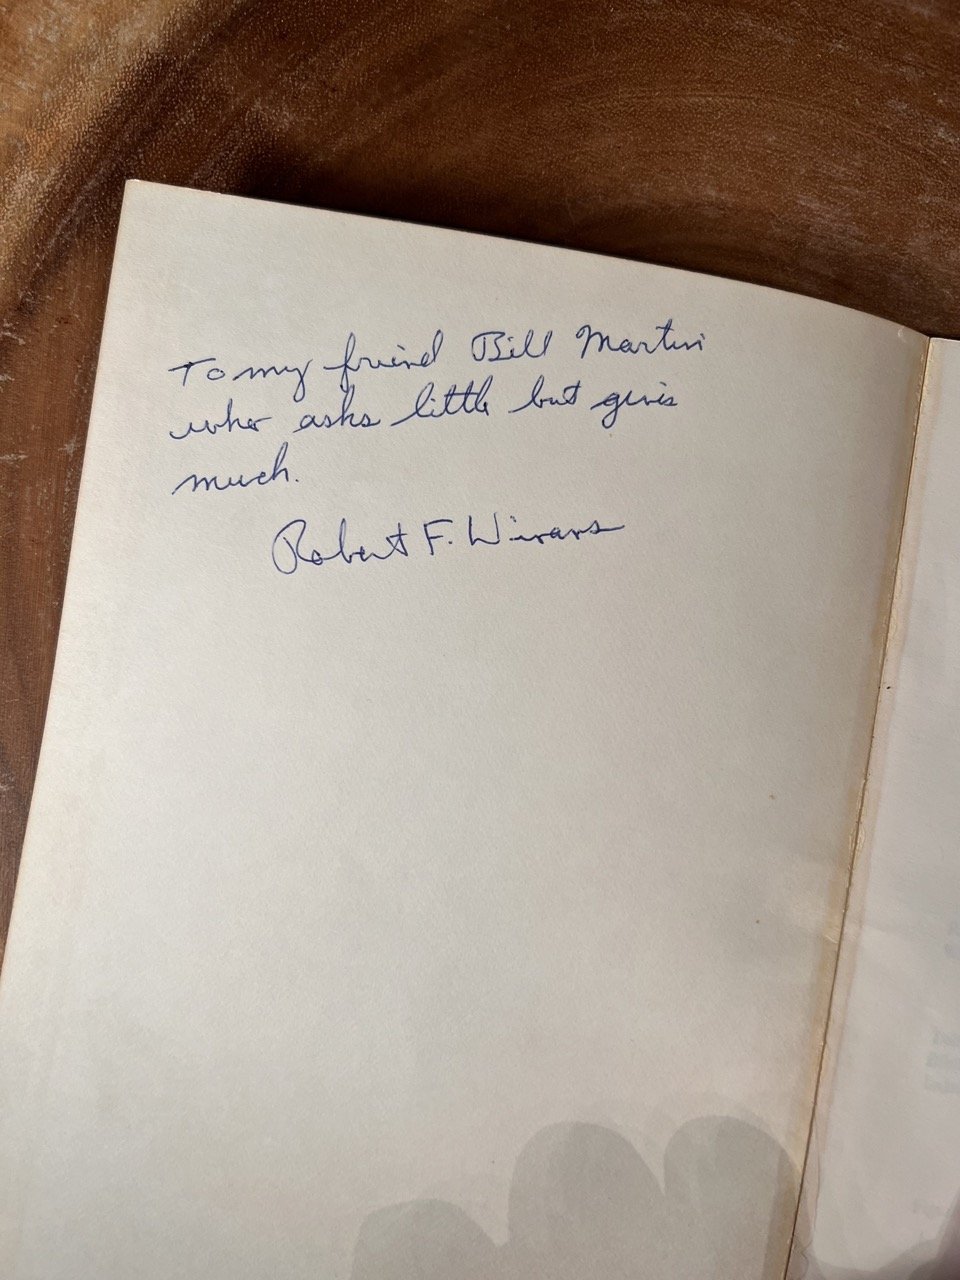 To my friend Bill Martin
who asks little but gives
much.
Robert F. Winans